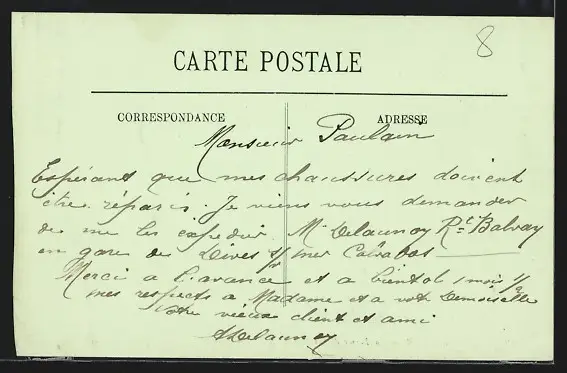 8
CARTE POSTALE
CORRESPONDANCE
ADRESSE
Monsieur Paulain
Espérant que mes chaussures doivent
être réparés. Je viens vous demander
de me les expedier. Mr Delaunoy Rt Balvay
en gare de Dives s/ mer Calvados
Merci a l'avance et a bientot 1 mois 1/2
mes respects a Madame et a votre Demoiselle
Votre vieux client et ami
ADelaunoy